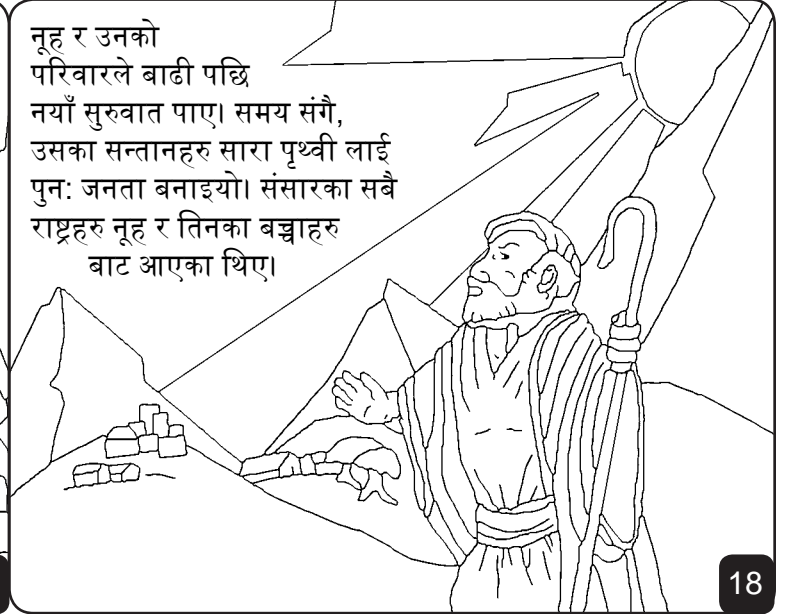 नूह र उनको
परिवारले बाढी पछि
नयाँ सुरुवात पाए। समय संगै,
उसका सन्तानहरु सारा पृथ्वी लाई
पुन: जनता बनाइयो। संसारका सबै
राष्ट्रहरु नूह र तिनका बच्चाहरु
बाट आएका थिए।
18